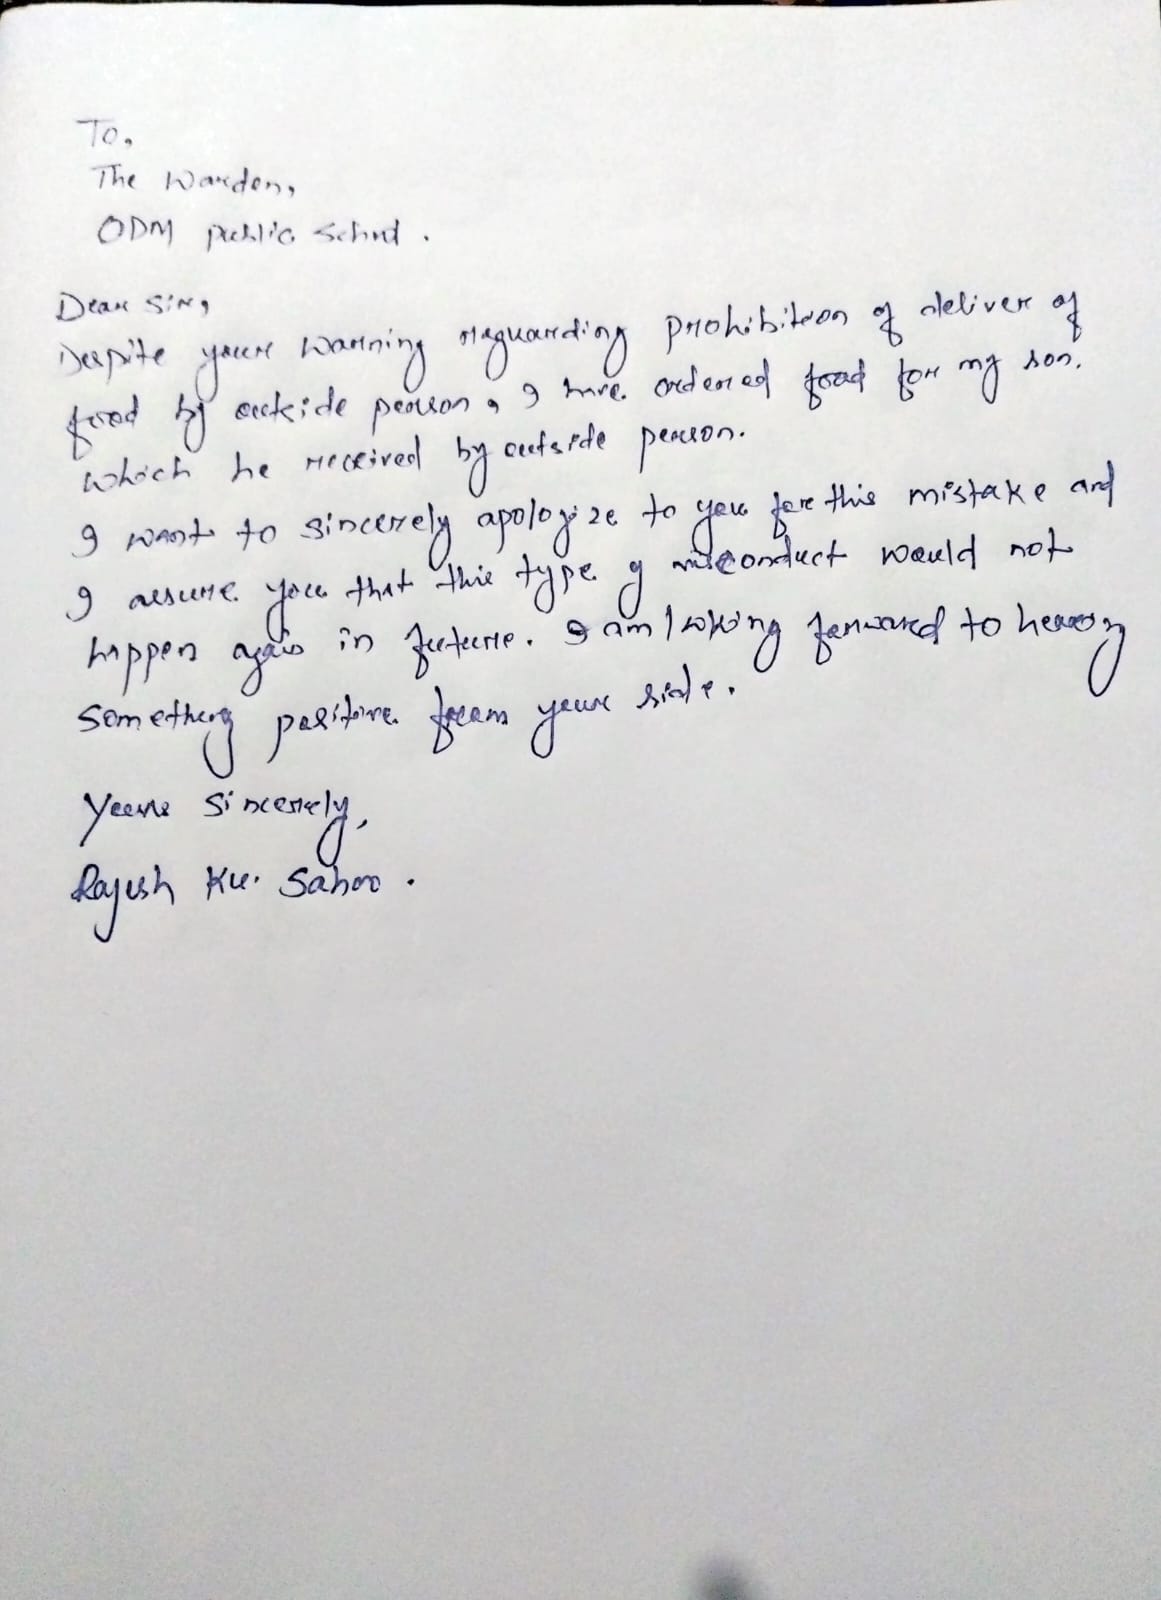 To,
The Warden,
ODM public School.
Dear Sir,
Despite your warning reguarding prohibition of deliver of
food by outside person, I have ordered food for my son.
which he received by outside person.
I want to sincerely apologize to you for this mistake and
I assure you that this type of misconduct would not
happen again in future. I am looking forward to hearing
something positive from your side.
Yours sincerely,
Rajesh Ku. Sahoo.